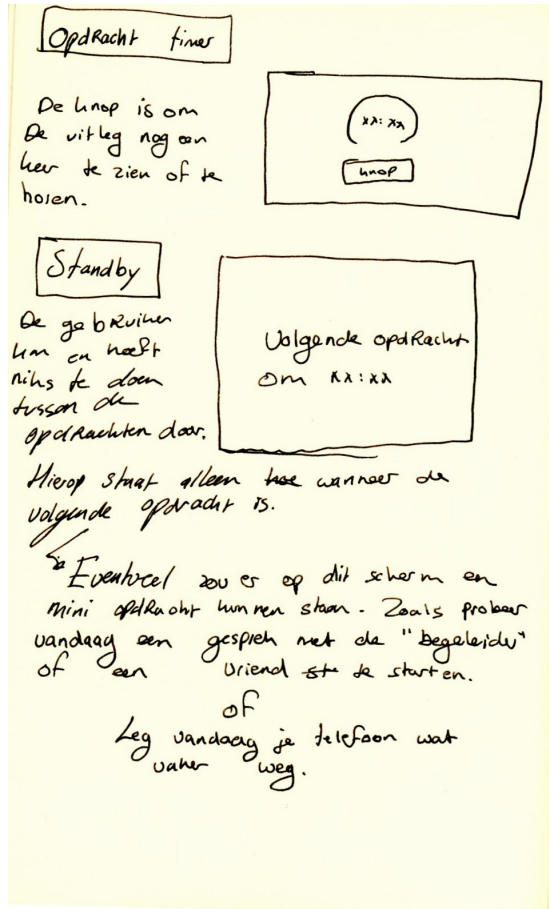 Opdracht timer
De knop is om
De uitleg nog een
keer te zien of te
horen.
xx:xx
knop
Standby
De gebruiker
kan en heeft
niks te doen
tussen de
opdrachten door.
Volgende opdracht
om xx:xx
Hierop staat alleen hoe wanneer de
volgende opdracht is.
Eventueel zou er op dit scherm en
mini opdracht kunnen staan. Zoals probeer
vandaag een gesprek met de "begeleider"
of een vriend te starten.
of
Leg vandaag je telefoon wat
vaker weg.